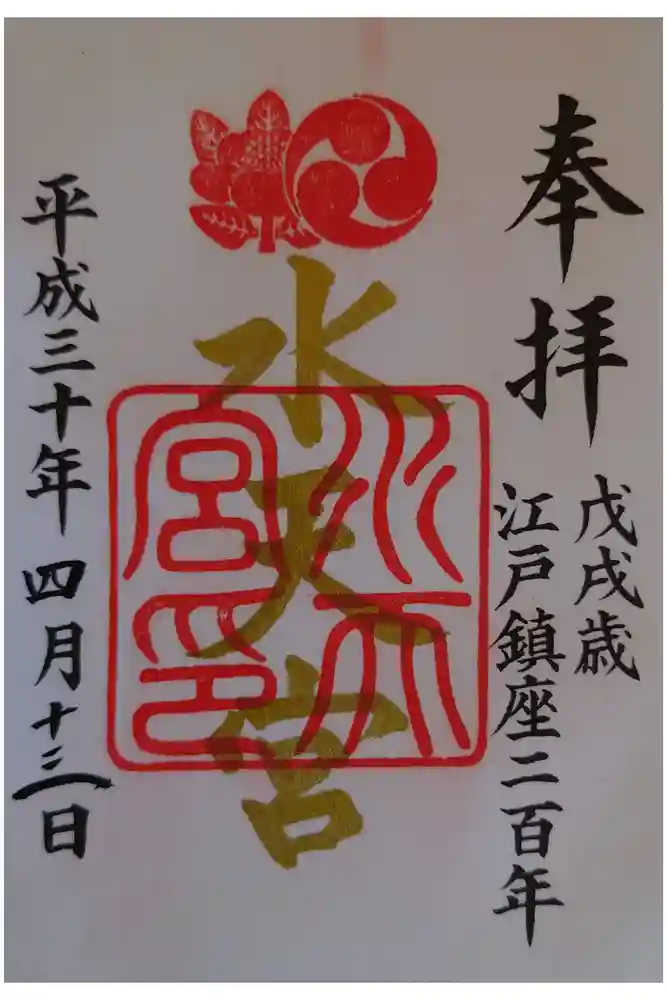 奉拝
戊戌歳
江戸鎮座二百年
水天宮
水天宮印
平成三十年 四月十三日